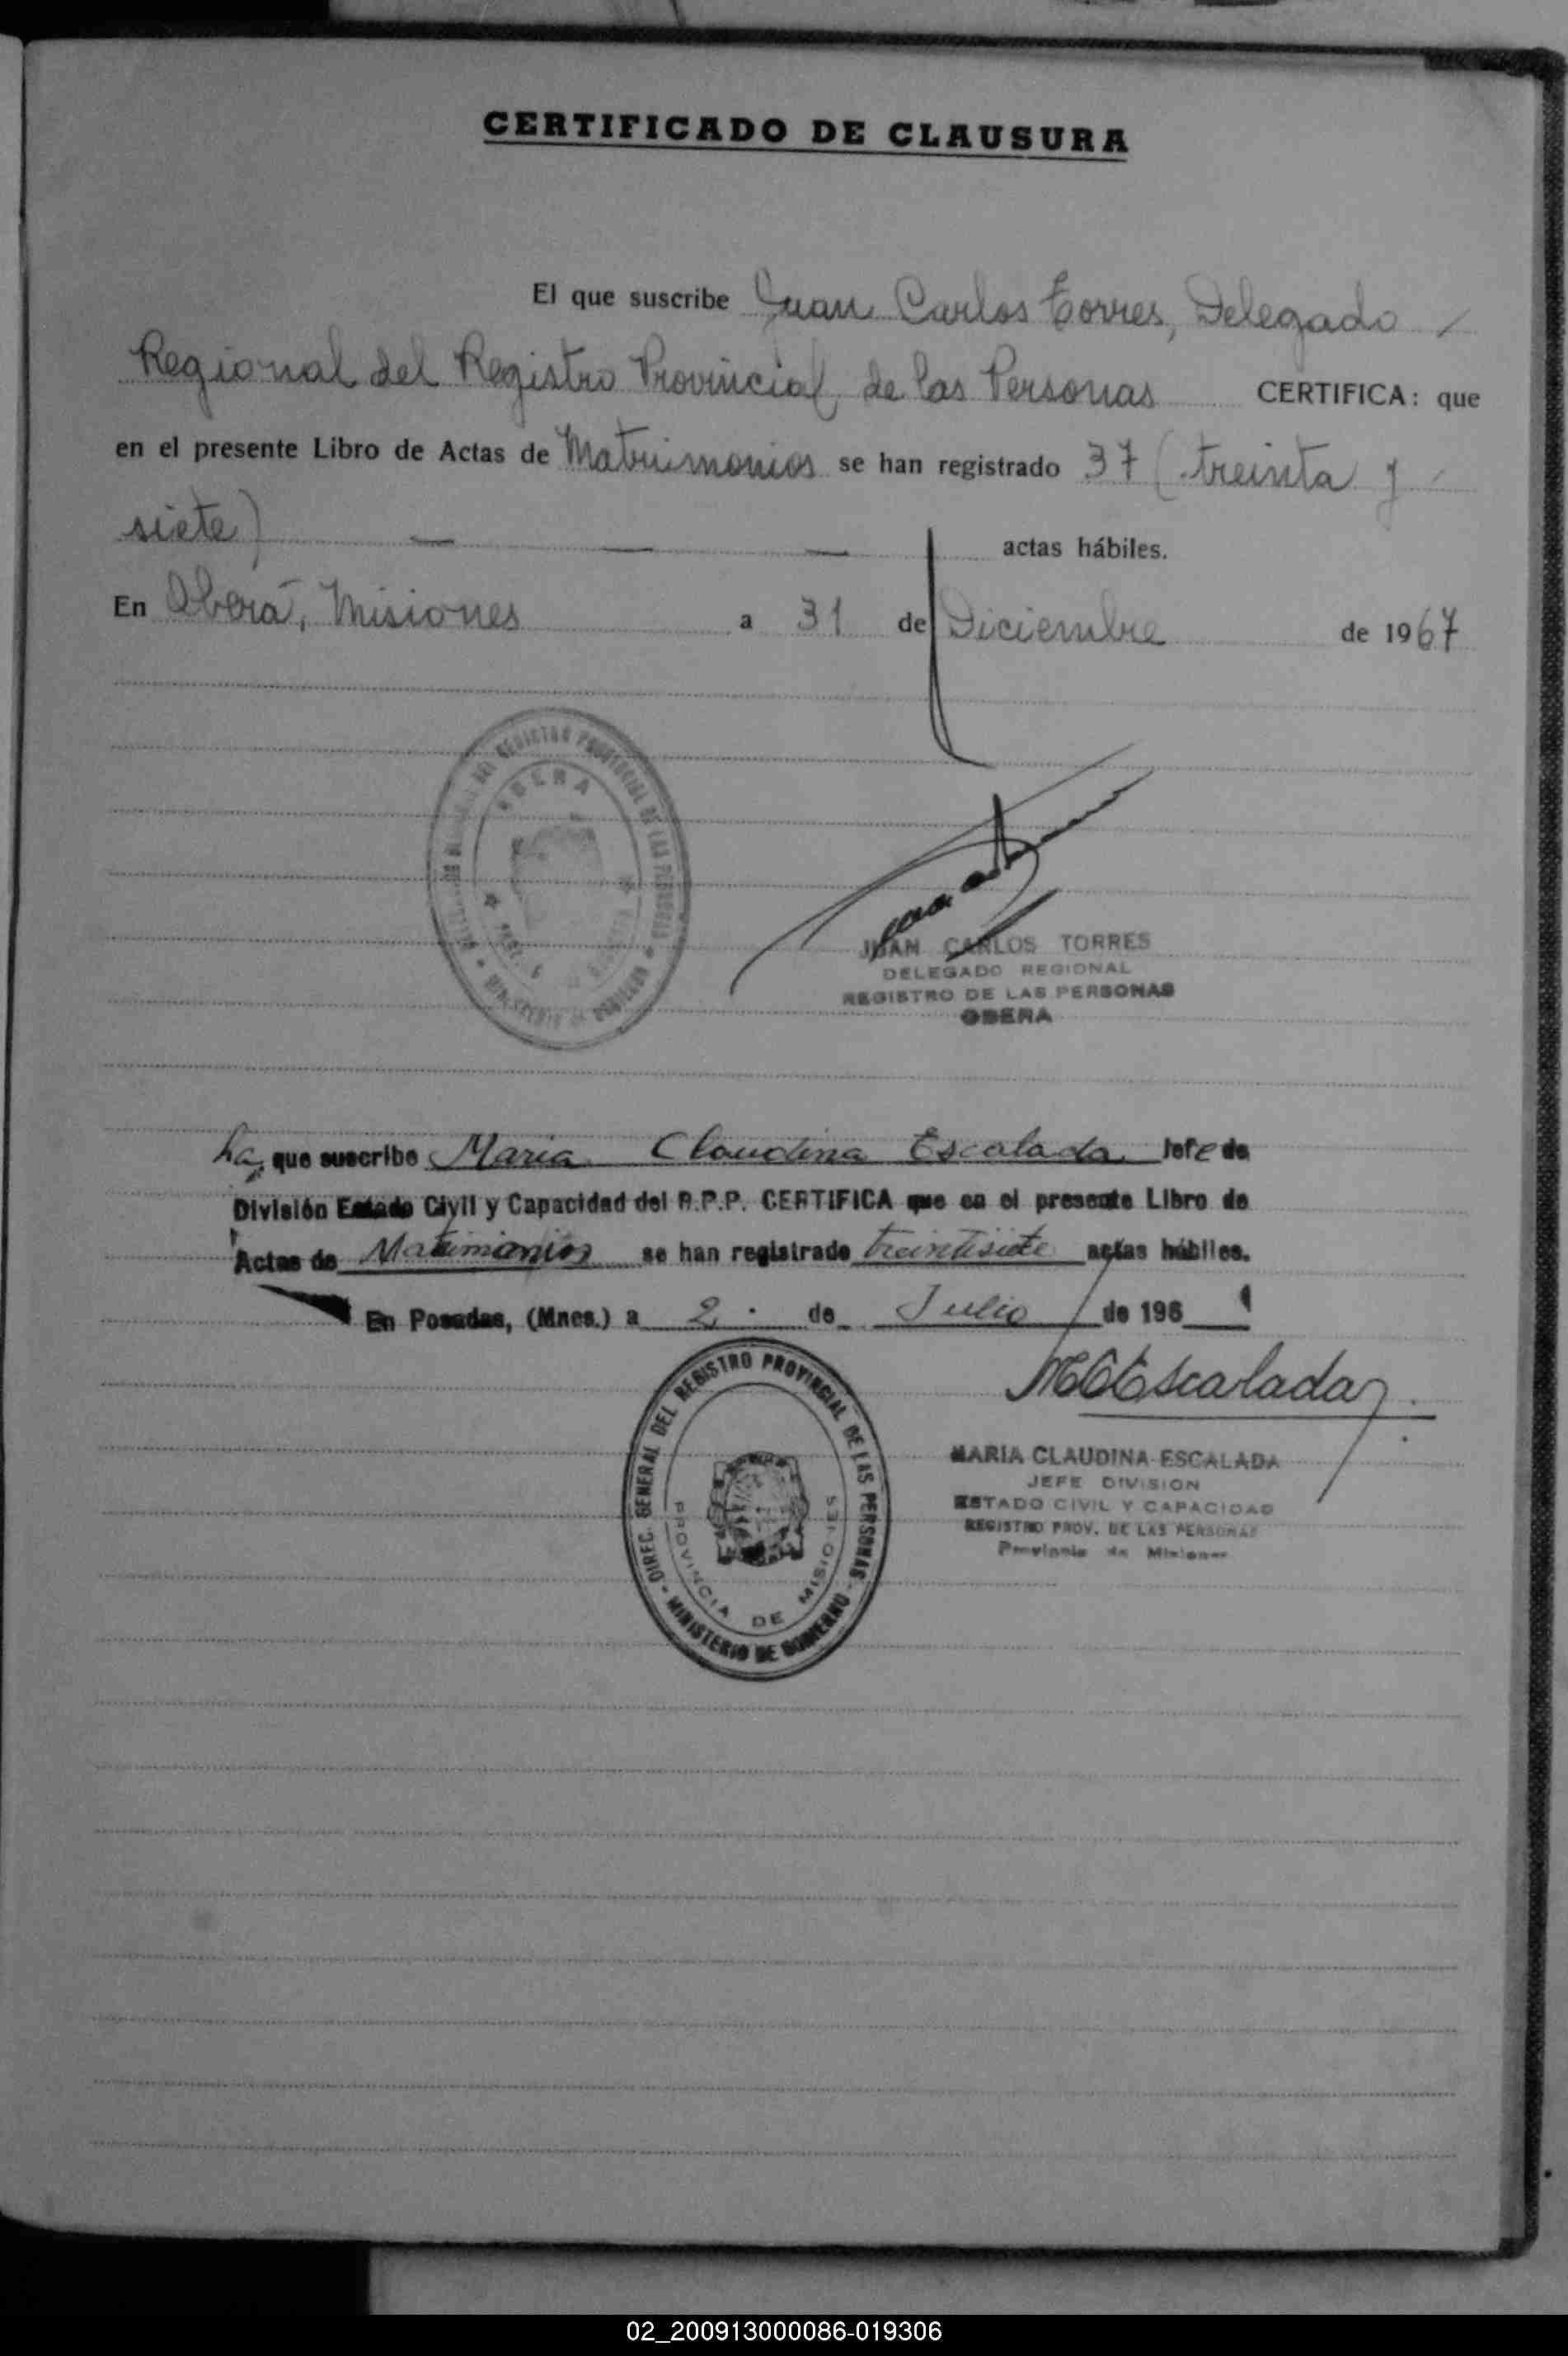 CERTIFICADO DE CLAUSURA
El que suscribe Juan Carlos Torres, Delegado
Regional del Registro Provincial de las Personas CERTIFICA: que
en el presente Libro de Actas de Matrimonios se han registrado 37 (treinta y
siete) — — — actas hábiles.
En Oberá, Misiones a 31 de Diciembre de 1967
REGISTRO PROVINCIAL DE LAS PERSONAS
OBERA
JUAN CARLOS TORRES
DELEGADO REGIONAL
REGISTRO DE LAS PERSONAS
OBERA
La que suscribe Maria Claudina Escalada Jefe de
División Estado Civil y Capacidad del R.P.P. CERTIFICA que en el presente Libro de
Actas de Matrimonios se han registrado treintisiete actas hábiles.
En Posadas, (Mnes.) a 2 de Julio de 196
MCEscalada
DIREC. GENERAL DEL REGISTRO PROVINCIAL DE LAS PERSONAS - MINISTERIO DE GOBIERNO -
PROVINCIA DE MISIONES
MARIA CLAUDINA ESCALADA
JEFE DIVISION
ESTADO CIVIL Y CAPACIDAD
REGISTRO PROV. DE LAS PERSONAS
Provincia de Misiones
02_200913000086-019306